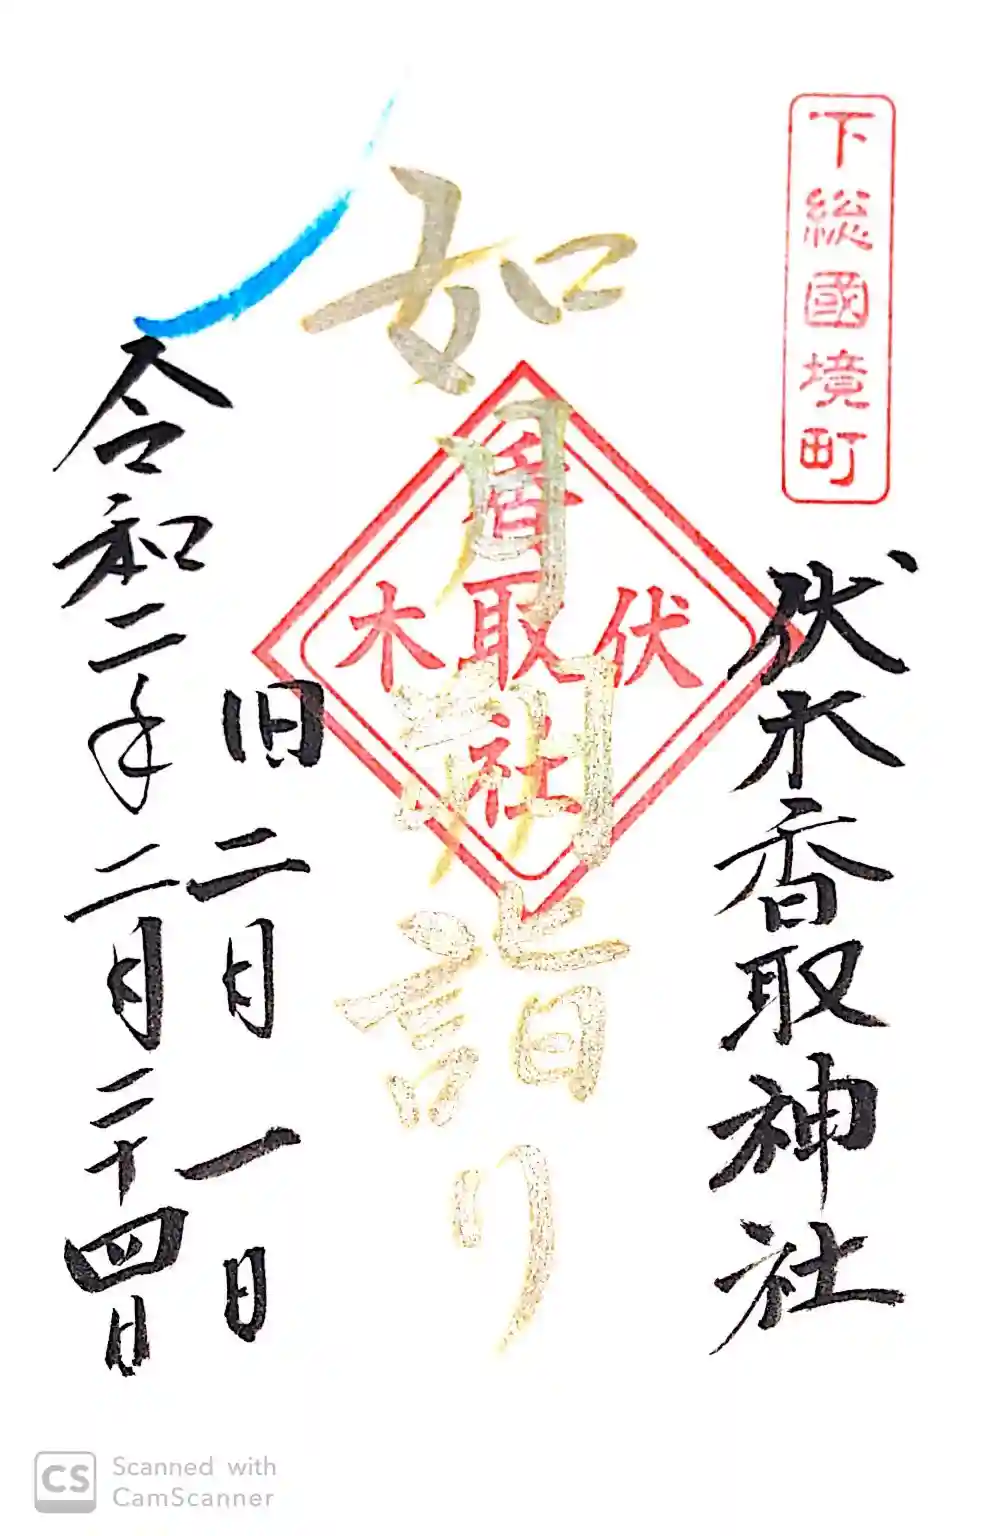 下総國境町
伏木香取神社
如月朔詣り
伏
香取社
木
旧二月一日
令和二年二月二十四日
Scanned with
CamScanner